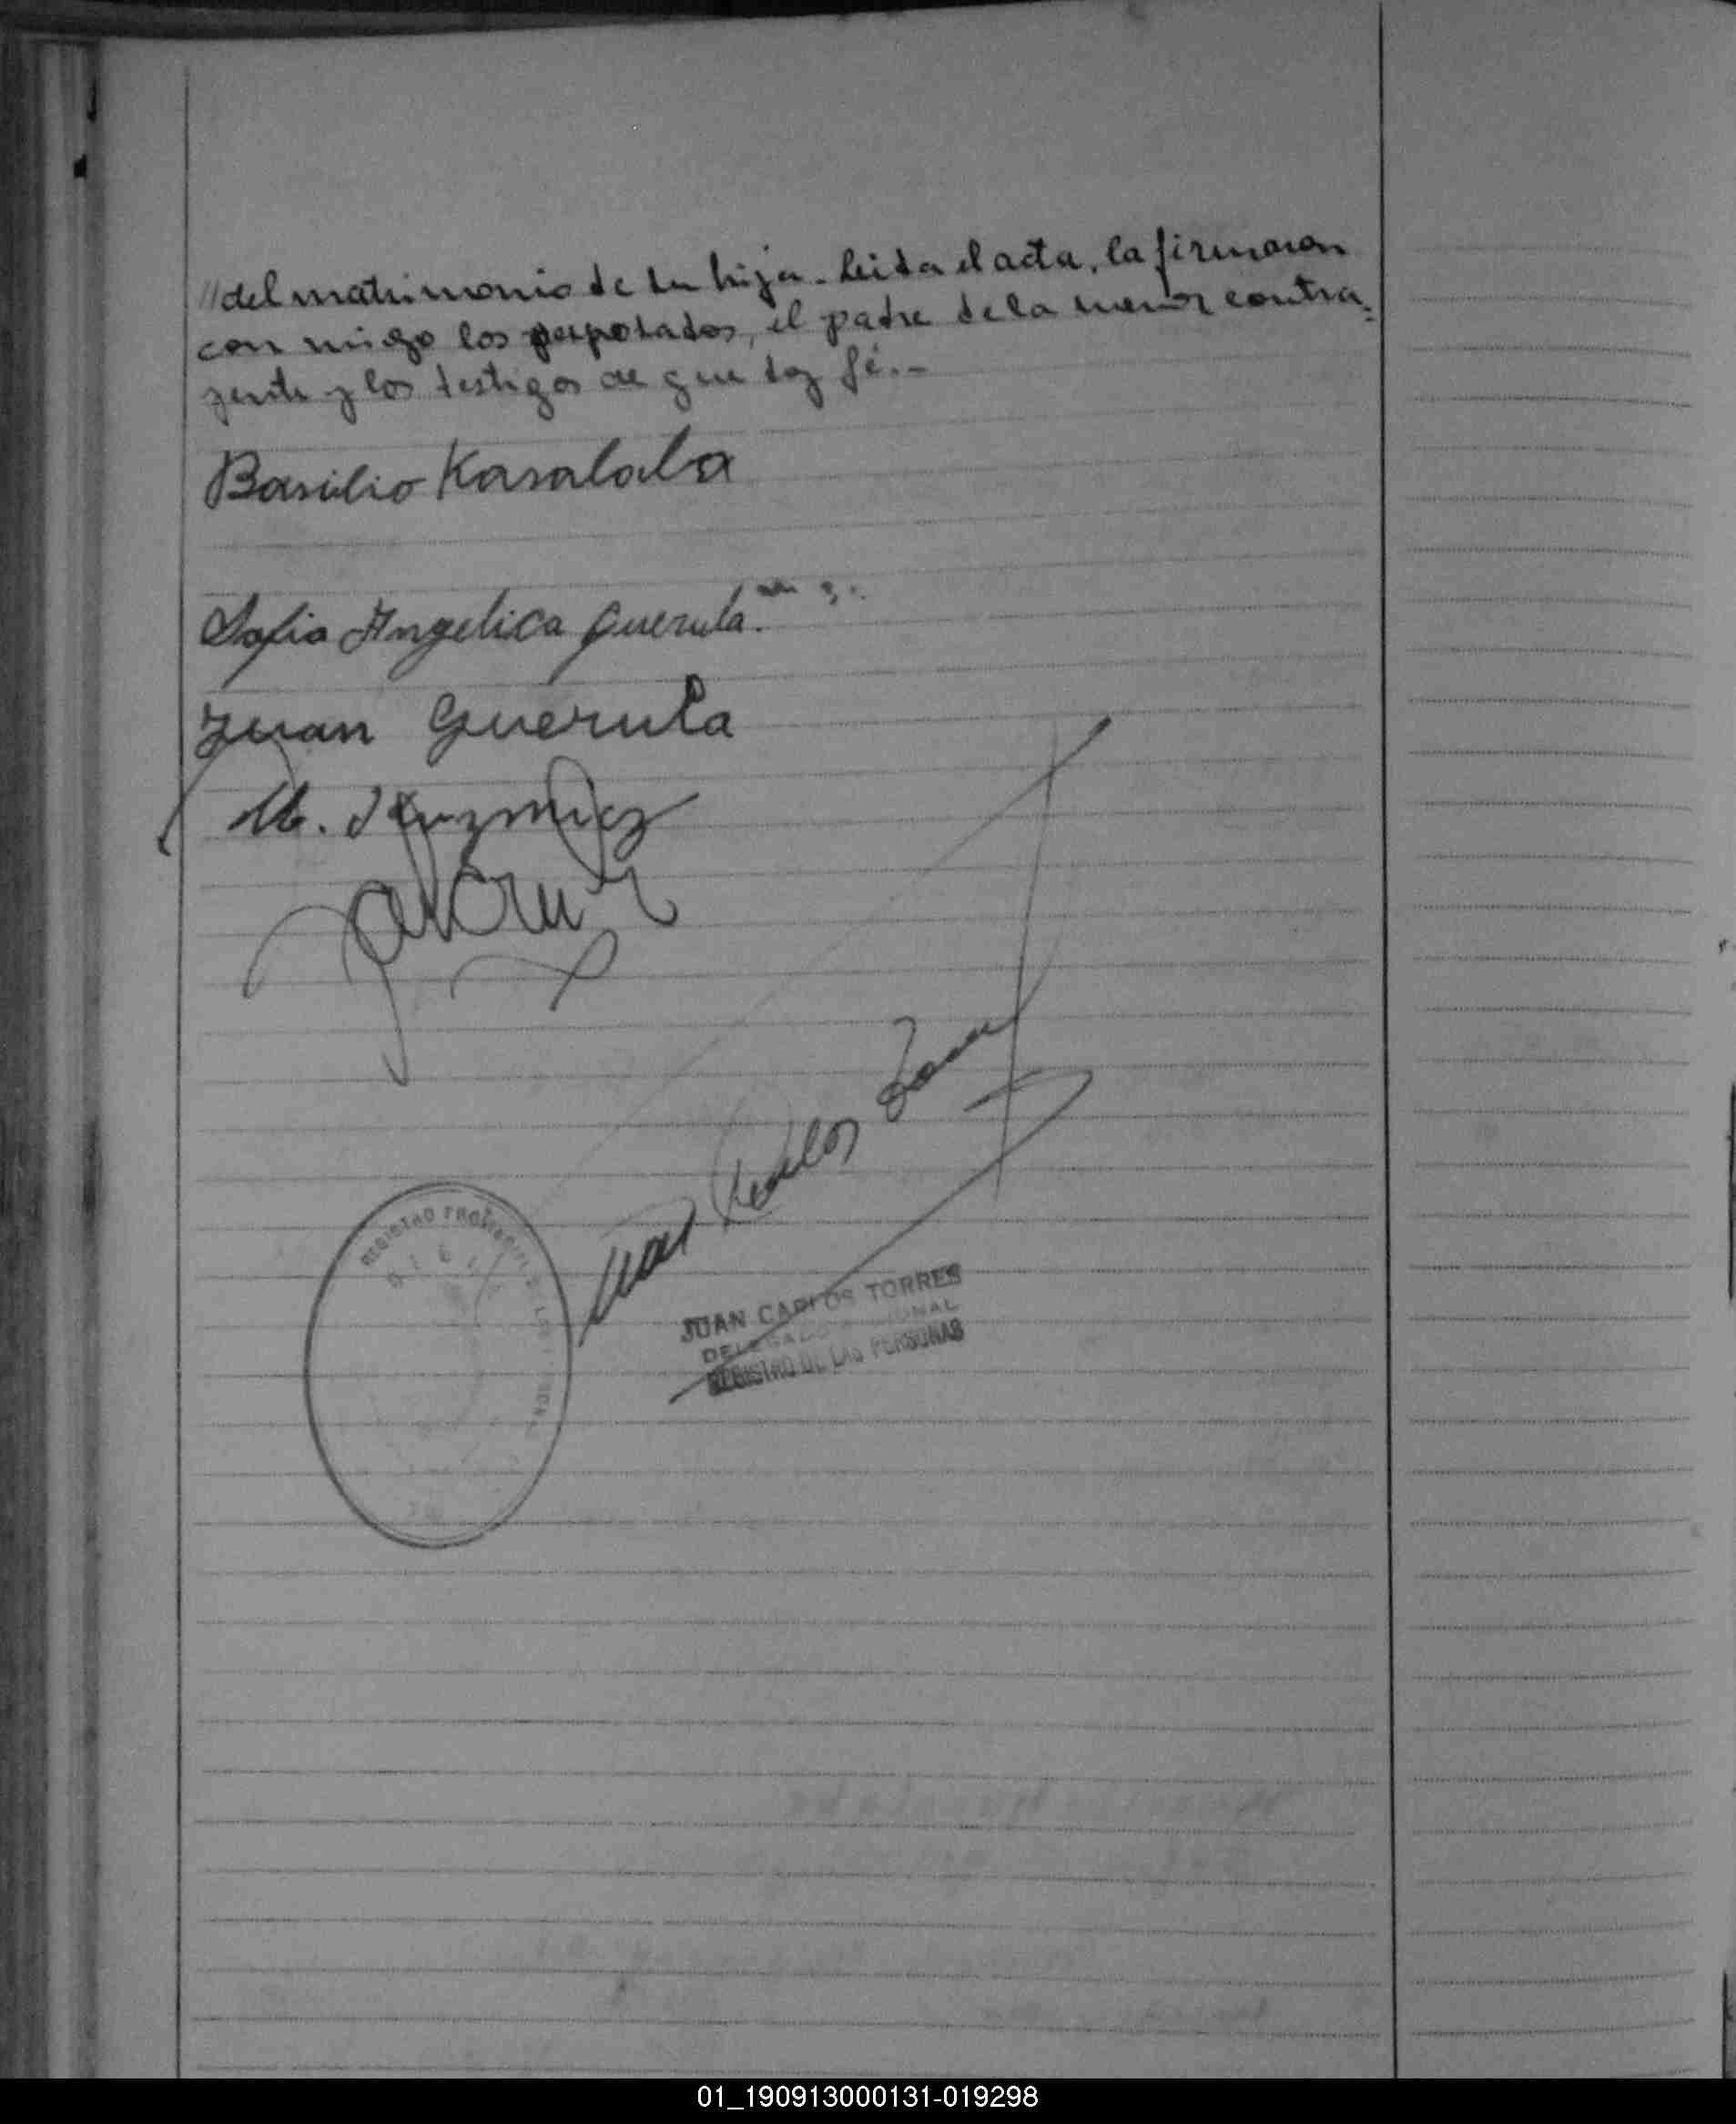 //del matrimonio de su hija. Leida el acta, la firmaron
con migo los desposados, el padre de la menor contra=
yente y los testigos de que doy fé.-
Basilio Kasalaba
Sofia Angelica Querula.
Juan Querula
M. Kuzmicz
Juan Carlos Torres
REGISTRO PROVINCIAL DE LAS PERSONAS
JUAN CARLOS TORRES
DELEGADO
REGISTRO DE LAS PERSONAS
01_190913000131-019298